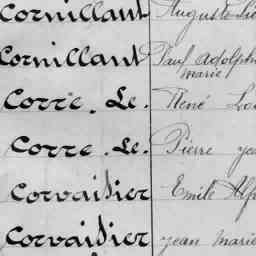 Cornillant Auguste
Cornillant Paul Adolphe
Marie
Corre. Le. René
Corre. Le. Pierre
Corvaisier Emile
Corvaisier Jean Marie